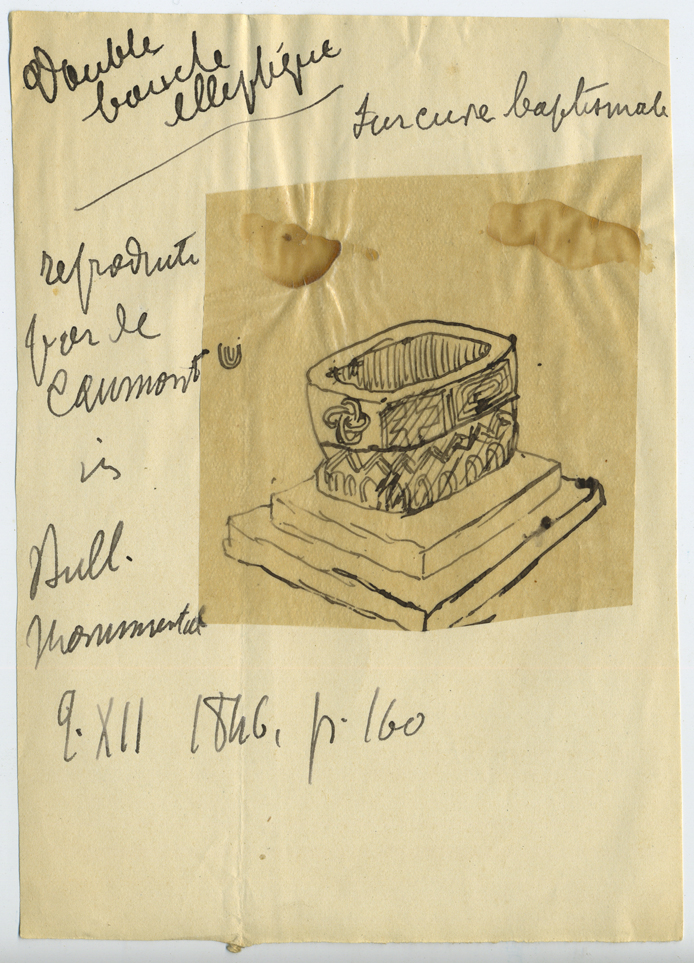 Double
boucle
elliptique
sur cuve baptismale
reproduite
par de
Caumont
in
Bull.
Monumental
t. XII 1846, p. 160